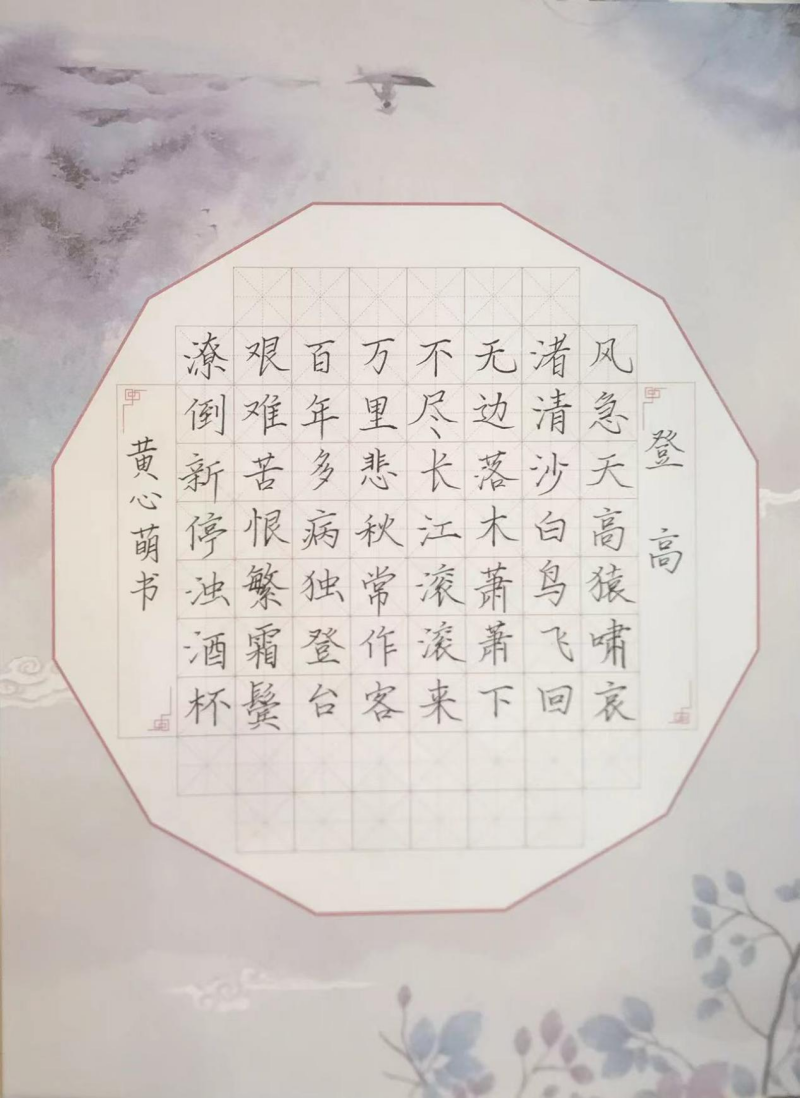 登高
风急天高猿啸哀
渚清沙白鸟飞回
无边落木萧萧下
不尽长江滚滚来
万里悲秋常作客
百年多病独登台
艰难苦恨繁霜鬓
潦倒新停浊酒杯
黄心萌书